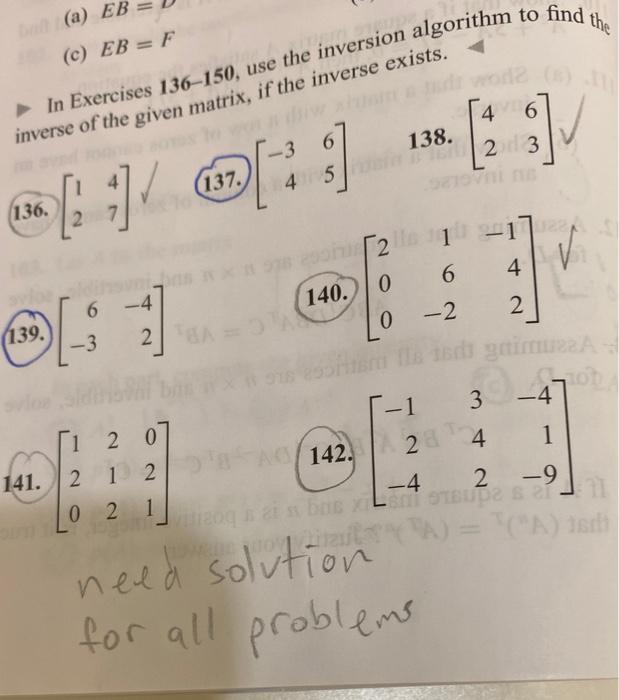 (a) EB = D
(c) EB = F
▶ In Exercises 136–150, use the inversion algorithm to find the
inverse of the given matrix, if the inverse exists. ◀
136. [1 4] ✓ 137. [−3 6] 138. [4 6] ✓
[2 7] [4 5] [2 3]
139. [6 −4] 140. [2 1 −1] ✓
[−3 2] [0 6 4]
[0 −2 2]
141. [1 2 0] 142. [−1 3 −4]
[2 1 2] [2 4 1]
[0 2 1] [−4 2 −9]
need solution
for all problems